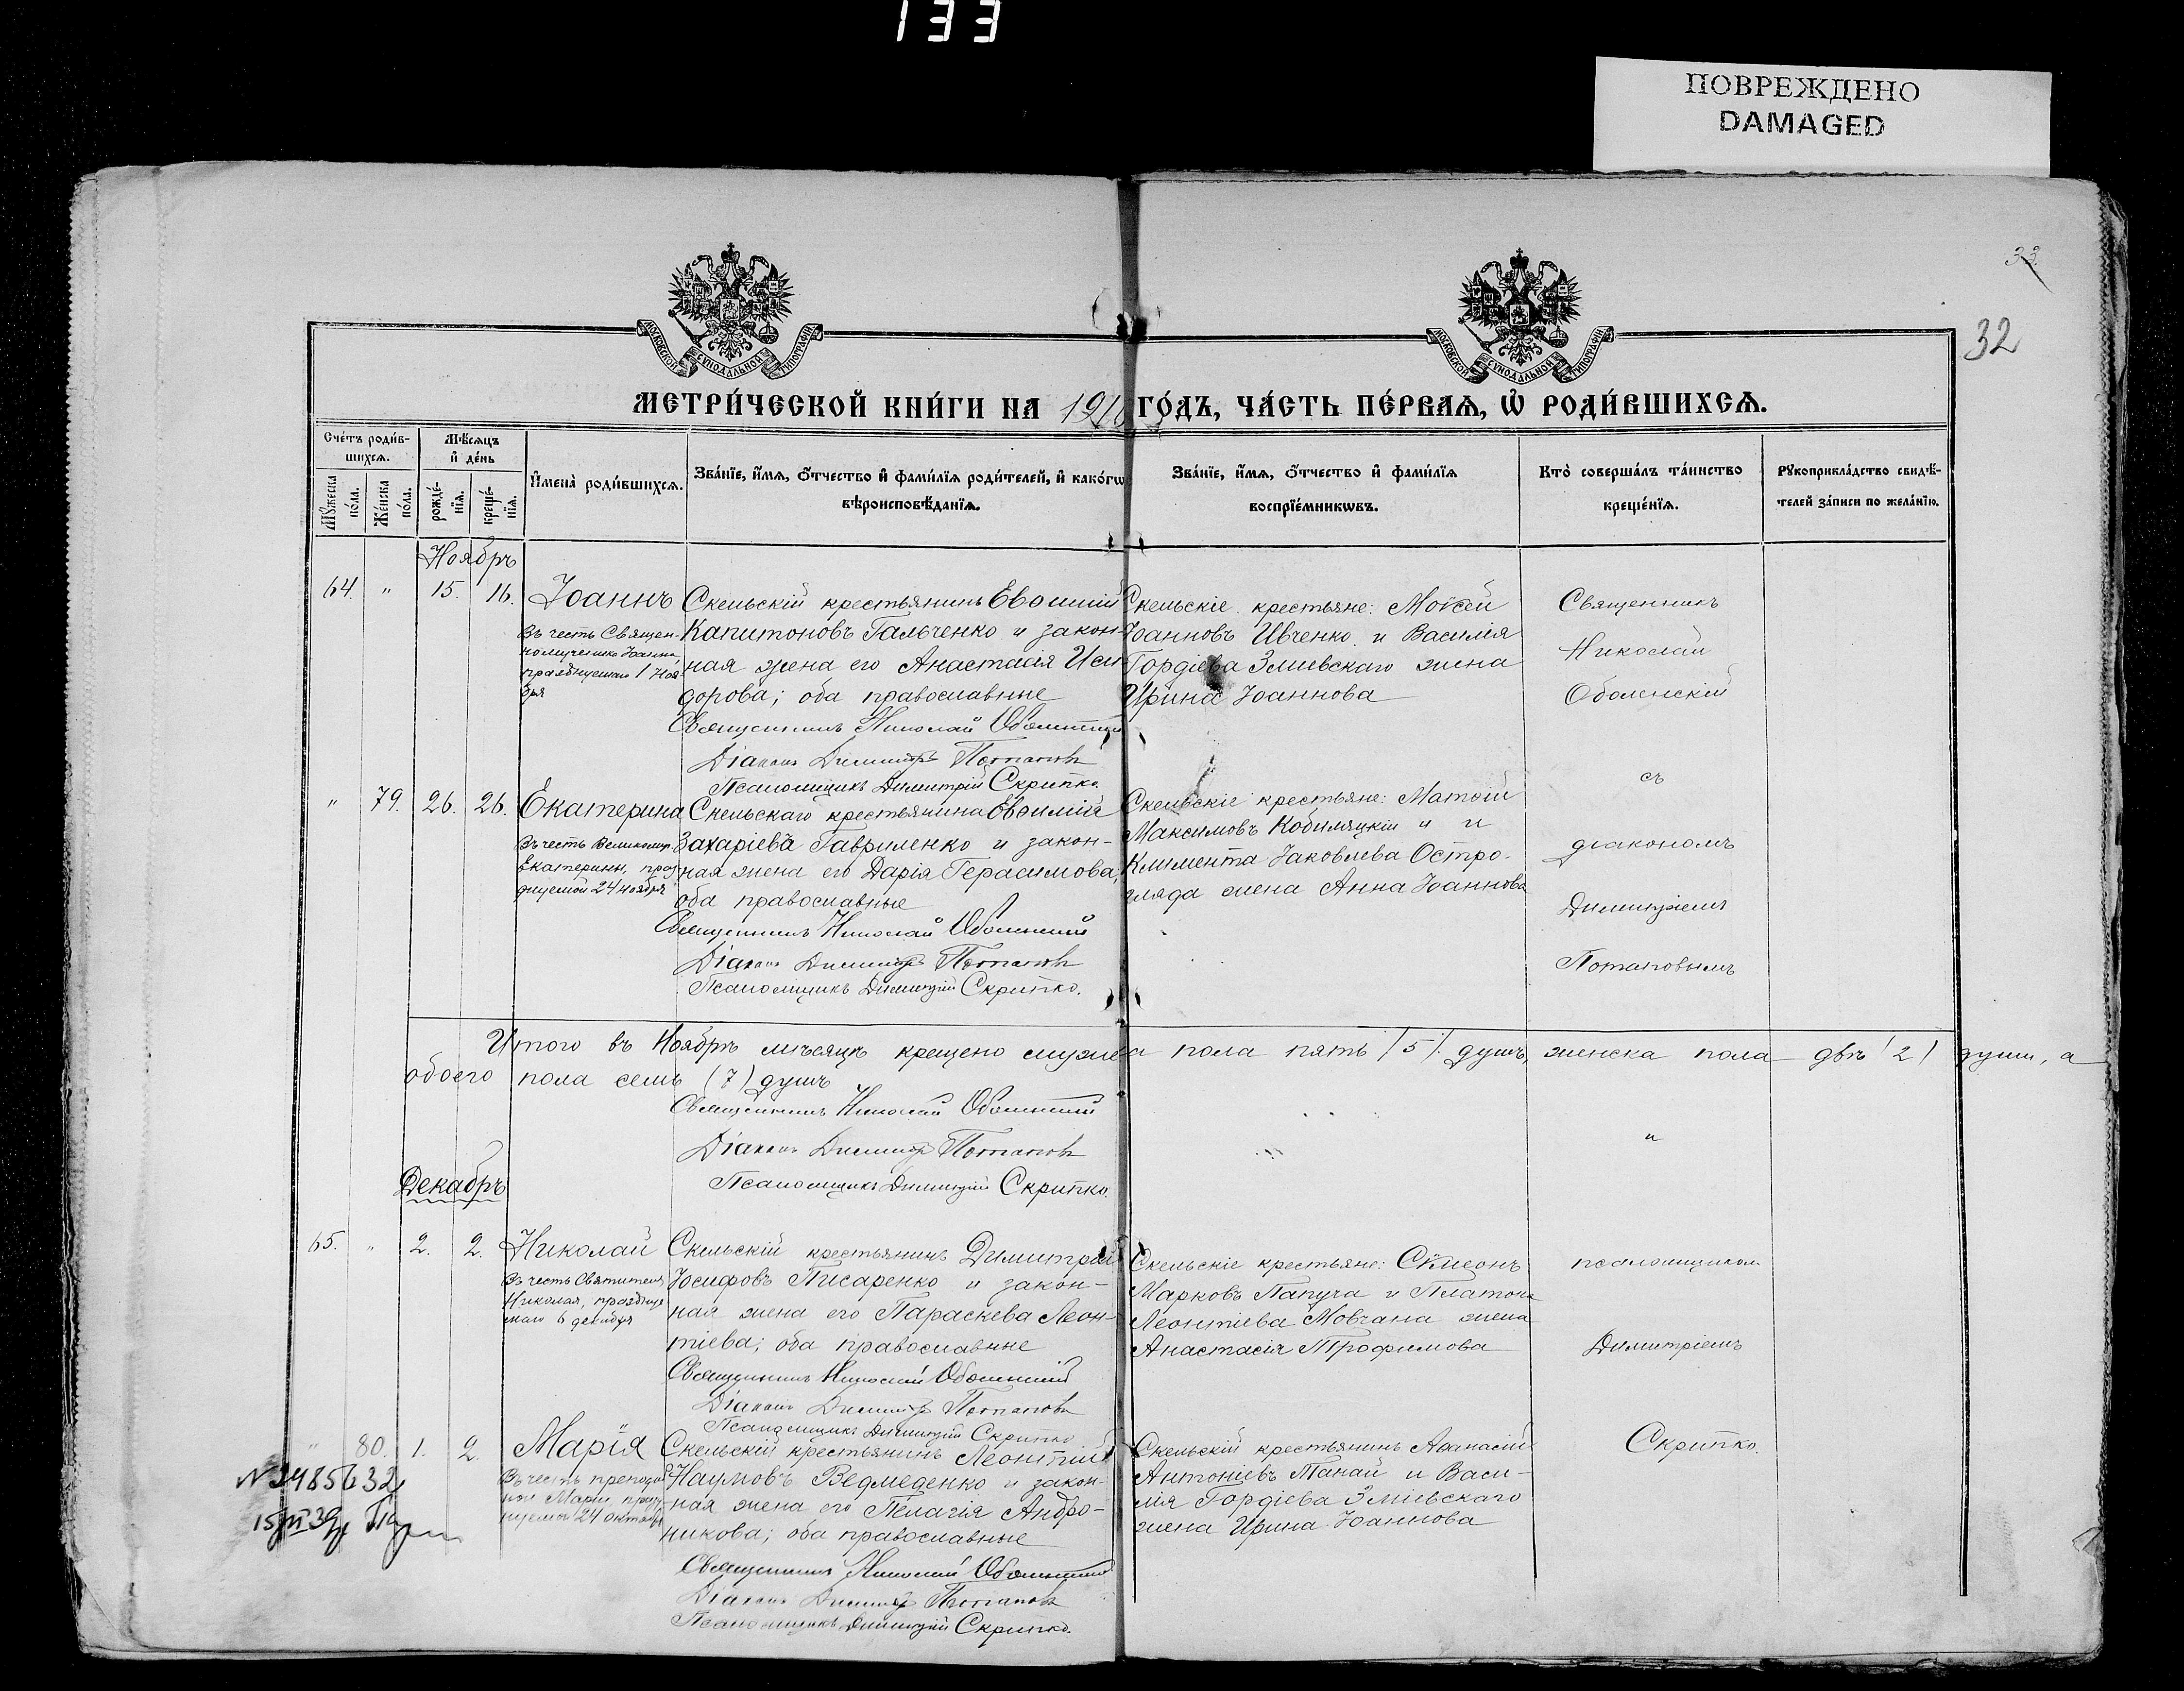 133
ПОВРЕЖДЕНО
DAMAGED
33.
32
МОСКОВСКОЙ СѴНОДАЛЬНОЙ ТИПОГРАФІИ
МОСКОВСКОЙ СѴНОДАЛЬНОЙ ТИПОГРАФІИ
МЕТРИ́ЧЕСКОЙ КНИ́ГИ НА 1910 ГО́ДЪ, ЧА́СТЬ ПЕ́РВАѦ, Ѡ҆ РОДИ́ВШИХСѦ.
Сче́тъ роди́в-
шихсѧ.
Мꙋ́жеска по́ла.
Же́нска по́ла.
Мѣ́сѧцъ
и҆ де́нь
рожде́-
нїѧ.
креще́-
нїѧ.
И҆мена̀ роди́вшихсѧ.
Зва́нїе, и҆́мѧ, ѻ҆́тчество и҆ фами́лїѧ роди́телей, и҆ како́гѡ
вѣроисповѣ́данїѧ.
Зва́нїе, и҆́мѧ, ѻ҆́тчество и҆ фами́лїѧ
воспрїе́мникѡвъ.
Кто̀ соверша́лъ та́инство
креще́нїѧ.
Рꙋкоприкла́дство свидѣ́-
телей за́писи по жела́нїю.
Ноябрь
64. " 15. 16. Іоаннъ
Въ честь Священ-
номученика Іоанна,
празднуемаго 1 Ноя-
бря
Скельскій крестьянинъ Евѳимій
Капитоновъ Гальченко и закон-
ная жена его Анастасія Иси-
дорова; оба православные
Священникъ Николай Оболенскій
Діаконъ Димитрій Потаповъ
Псаломщикъ Димитрій Скрипко.
Скельскіе крестьяне: Моѵсей
Іоанновъ Ивченко и Василія
Гордіева Зміевскаго жена
Ирина Іоаннова
Священникъ
Николай
Оболенскій
съ
діакономъ
Димитріемъ
Потаповымъ
" 79. 26. 26. Екатерина
Въ честь Великомуч.
Екатерины, праз-
днуемой 24 ноября
Скельскаго крестьянина Евѳимій
Захаріевъ Гавриленко и закон-
ная жена его Дарія Герасимова;
оба православные
Священникъ Николай Оболенскій
Діаконъ Димитрій Потаповъ
Псаломщикъ Димитрій Скрипко.
Скельскіе крестьяне: Матѳій
Максимовъ Кобиляцкій и и
Климента Іаковлева Остро-
гляда жена Анна Іоаннова
Итого въ Ноябрѣ мѣсяцѣ крещено мужеска пола пять (5) душъ, женска пола двѣ (2) души, а
обоего пола семь (7) душъ
Священникъ Николай Оболенскій
Діаконъ Димитрій Потаповъ
Псаломщикъ Димитрій Скрипко.
и
Декабрь
65. " 2. 2. Николай
Въ честь Святителя
Николая, праздnуе-
маго 6 декабря
Скельскій крестьянинъ Димитрій
Іосифовъ Писаренко и закон-
ная жена его Параскева Леон-
тіева; оба православные
Священникъ Николай Оболенскій
Діаконъ Димитрій Потаповъ
Псаломщикъ Димитрій Скрипко
Скельскіе крестьяне: Сѵмеонъ
Марковъ Папуча и Платона
Леонтіева Мовчана жена
Анастасія Трофимова
псаломщикомъ
Димитріемъ
Скрипко.
" 80. 1. 2. Марія
Въ честь преподоб-
ной Маріи, празд-
нуемой 24 октября
Скельскій крестьянинъ Леонтій
Наумовъ Ведмеденко и закон-
ная жена его Пелагія Андро-
никова; оба православные
Священникъ Николай Оболенскій
Діаконъ Димитрій Потаповъ
Псаломщикъ Димитрій Скрипко.
Скельскій крестьянинъ Аѳанасій
Антоніевъ Танай и Васи-
лія Гордіева Зміевскаго
жена Ирина Іоаннова